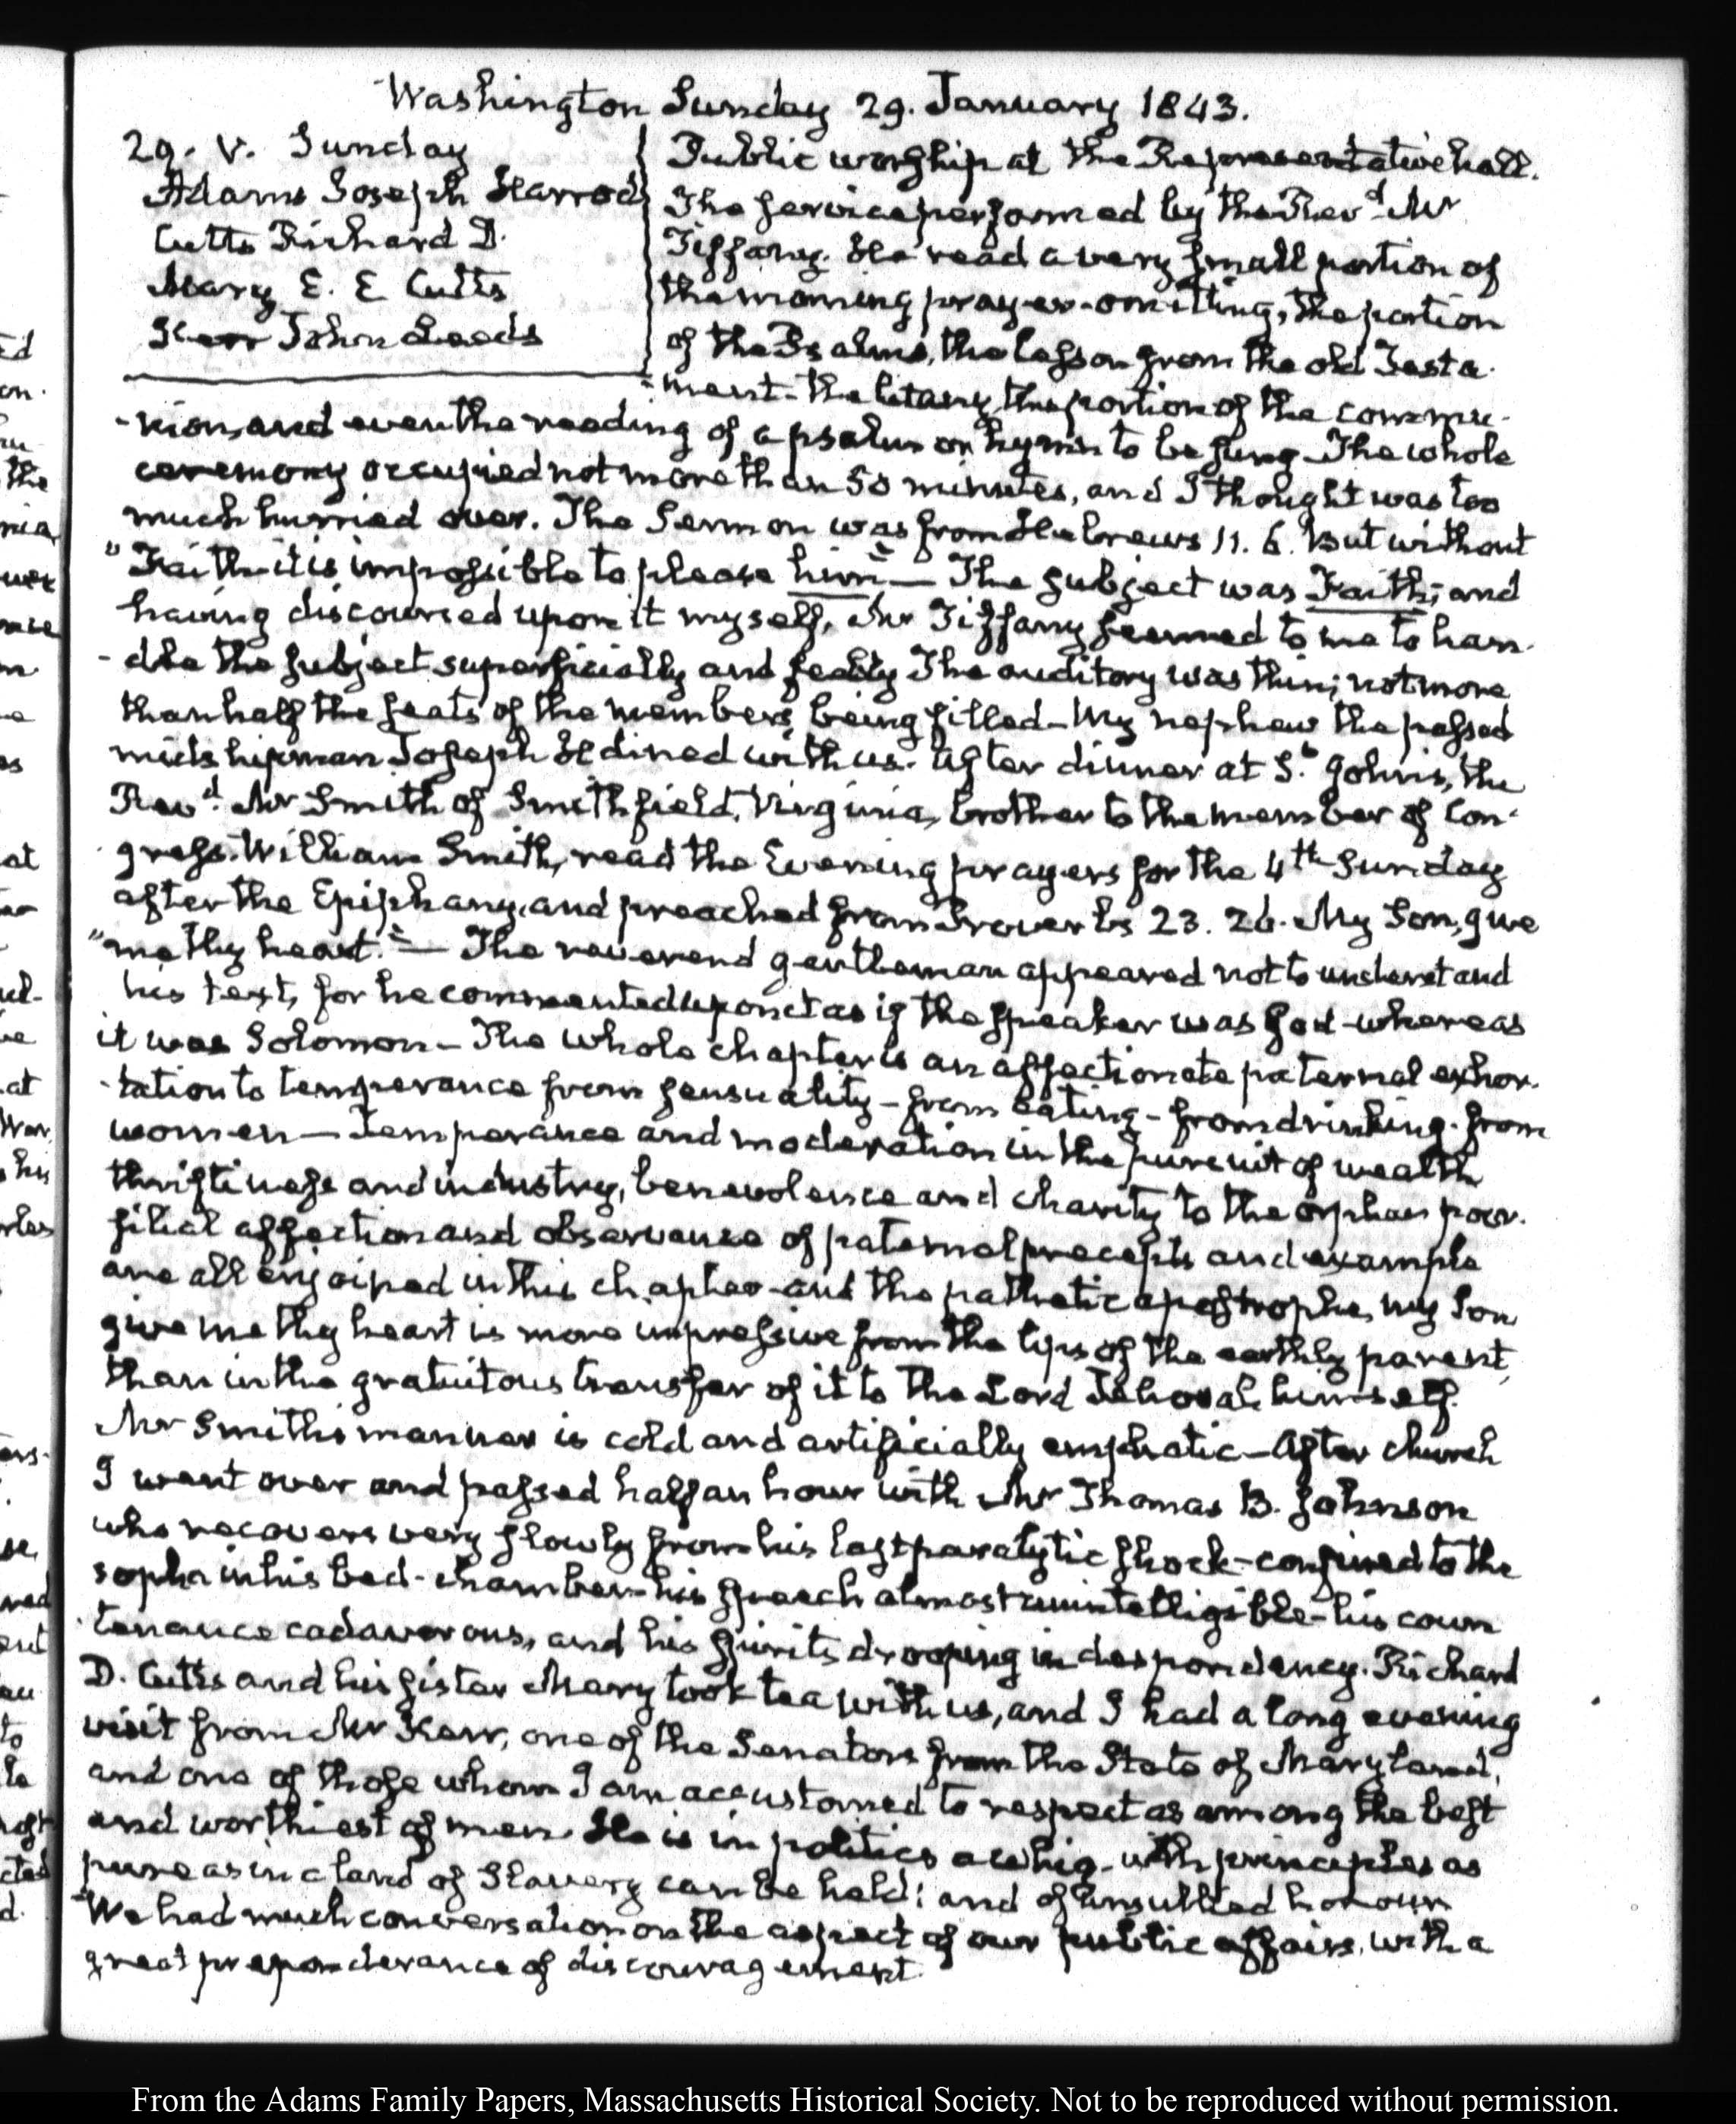 Washington Sunday 29. January 1843.
29. V. Sunday
Adams Joseph Harrod
Cutts Richard D.
Mary E. E Cutts
Kerr John Leeds
Public worship at the Representative hall.
The service performed by the Revd. Mr
Tiffany. He read a very small portion of
the morning prayer-omitting, the portion
of the Psalms, the lesson from the old Testa-
-ment-the litany, the portion of the commu-
-nion, and even the reading of a psalm or hymn to be sung-The whole
ceremony occupied not more than 50 minutes, and I thought was too
much hurried over. The Sermon was from Hebrews 11. 6. But without
"Faith it is impossible to please him"— The subject was Faith; and
having discoursed upon it myself, Mr Tiffany seemed to me to han-
-dle the subject superficially and feebly The auditory was thin; not more
than half the seats of the members being filled-My nephew the passed
midshipman Joseph H dined with us. After dinner at St. John's, the
Revd. Mr Smith of Smithfield, Virginia, brother to the member of Con-
gress. William Smith, read the Evening prayers for the 4th Sunday
after the Epiphany, and preached from Proverbs 23. 26. My Son, give
"me thy heart."— The reverend gentleman appeared not to understand
his text, for he commented upon it as if the speaker was God-whereas
it was Solomon-The whole chapter is an affectionate paternal exhor-
-tation to temperance from sensuality-from eating-from drinking-from
women—Temperance and moderation in the pursuit of wealth
thriftiness and industry, benevolence and charity to the orphan poor.
filial affection and observance of paternal precepts and example
are all enjoined in this chapter-and the pathetic apostrophe, my Son
give me thy heart is more impressive from the lips of the earthly parent,
than in the gratuitous transfer of it to the Lord Jehovah himself.
Mr Smith's manner is cold and artificially emphatic-After church
I went over and passed half an hour with Mr Thomas B. Johnson
who recovers very slowly from his last paralytic shock-confined to the
sopha in his bed-chamber-his speech almost unintelligible-his coun
-tenance cadaverous, and his spirits drooping in despondency. Richard
D. Cutts and his sister Mary took tea with us, and I had a long evening
visit from Mr Kerr, one of the Senators from the State of Maryland,
and one of those whom I am accustomed to respect as among the best
and worthiest of men. He is in politics a whig-with principles as
pure as in a land of Slavery can be held; and of unsullied honour
We had much conversation on the aspect of our public affairs, with a
great preponderance of discouragement.
From the Adams Family Papers, Massachusetts Historical Society. Not to be reproduced without permission.